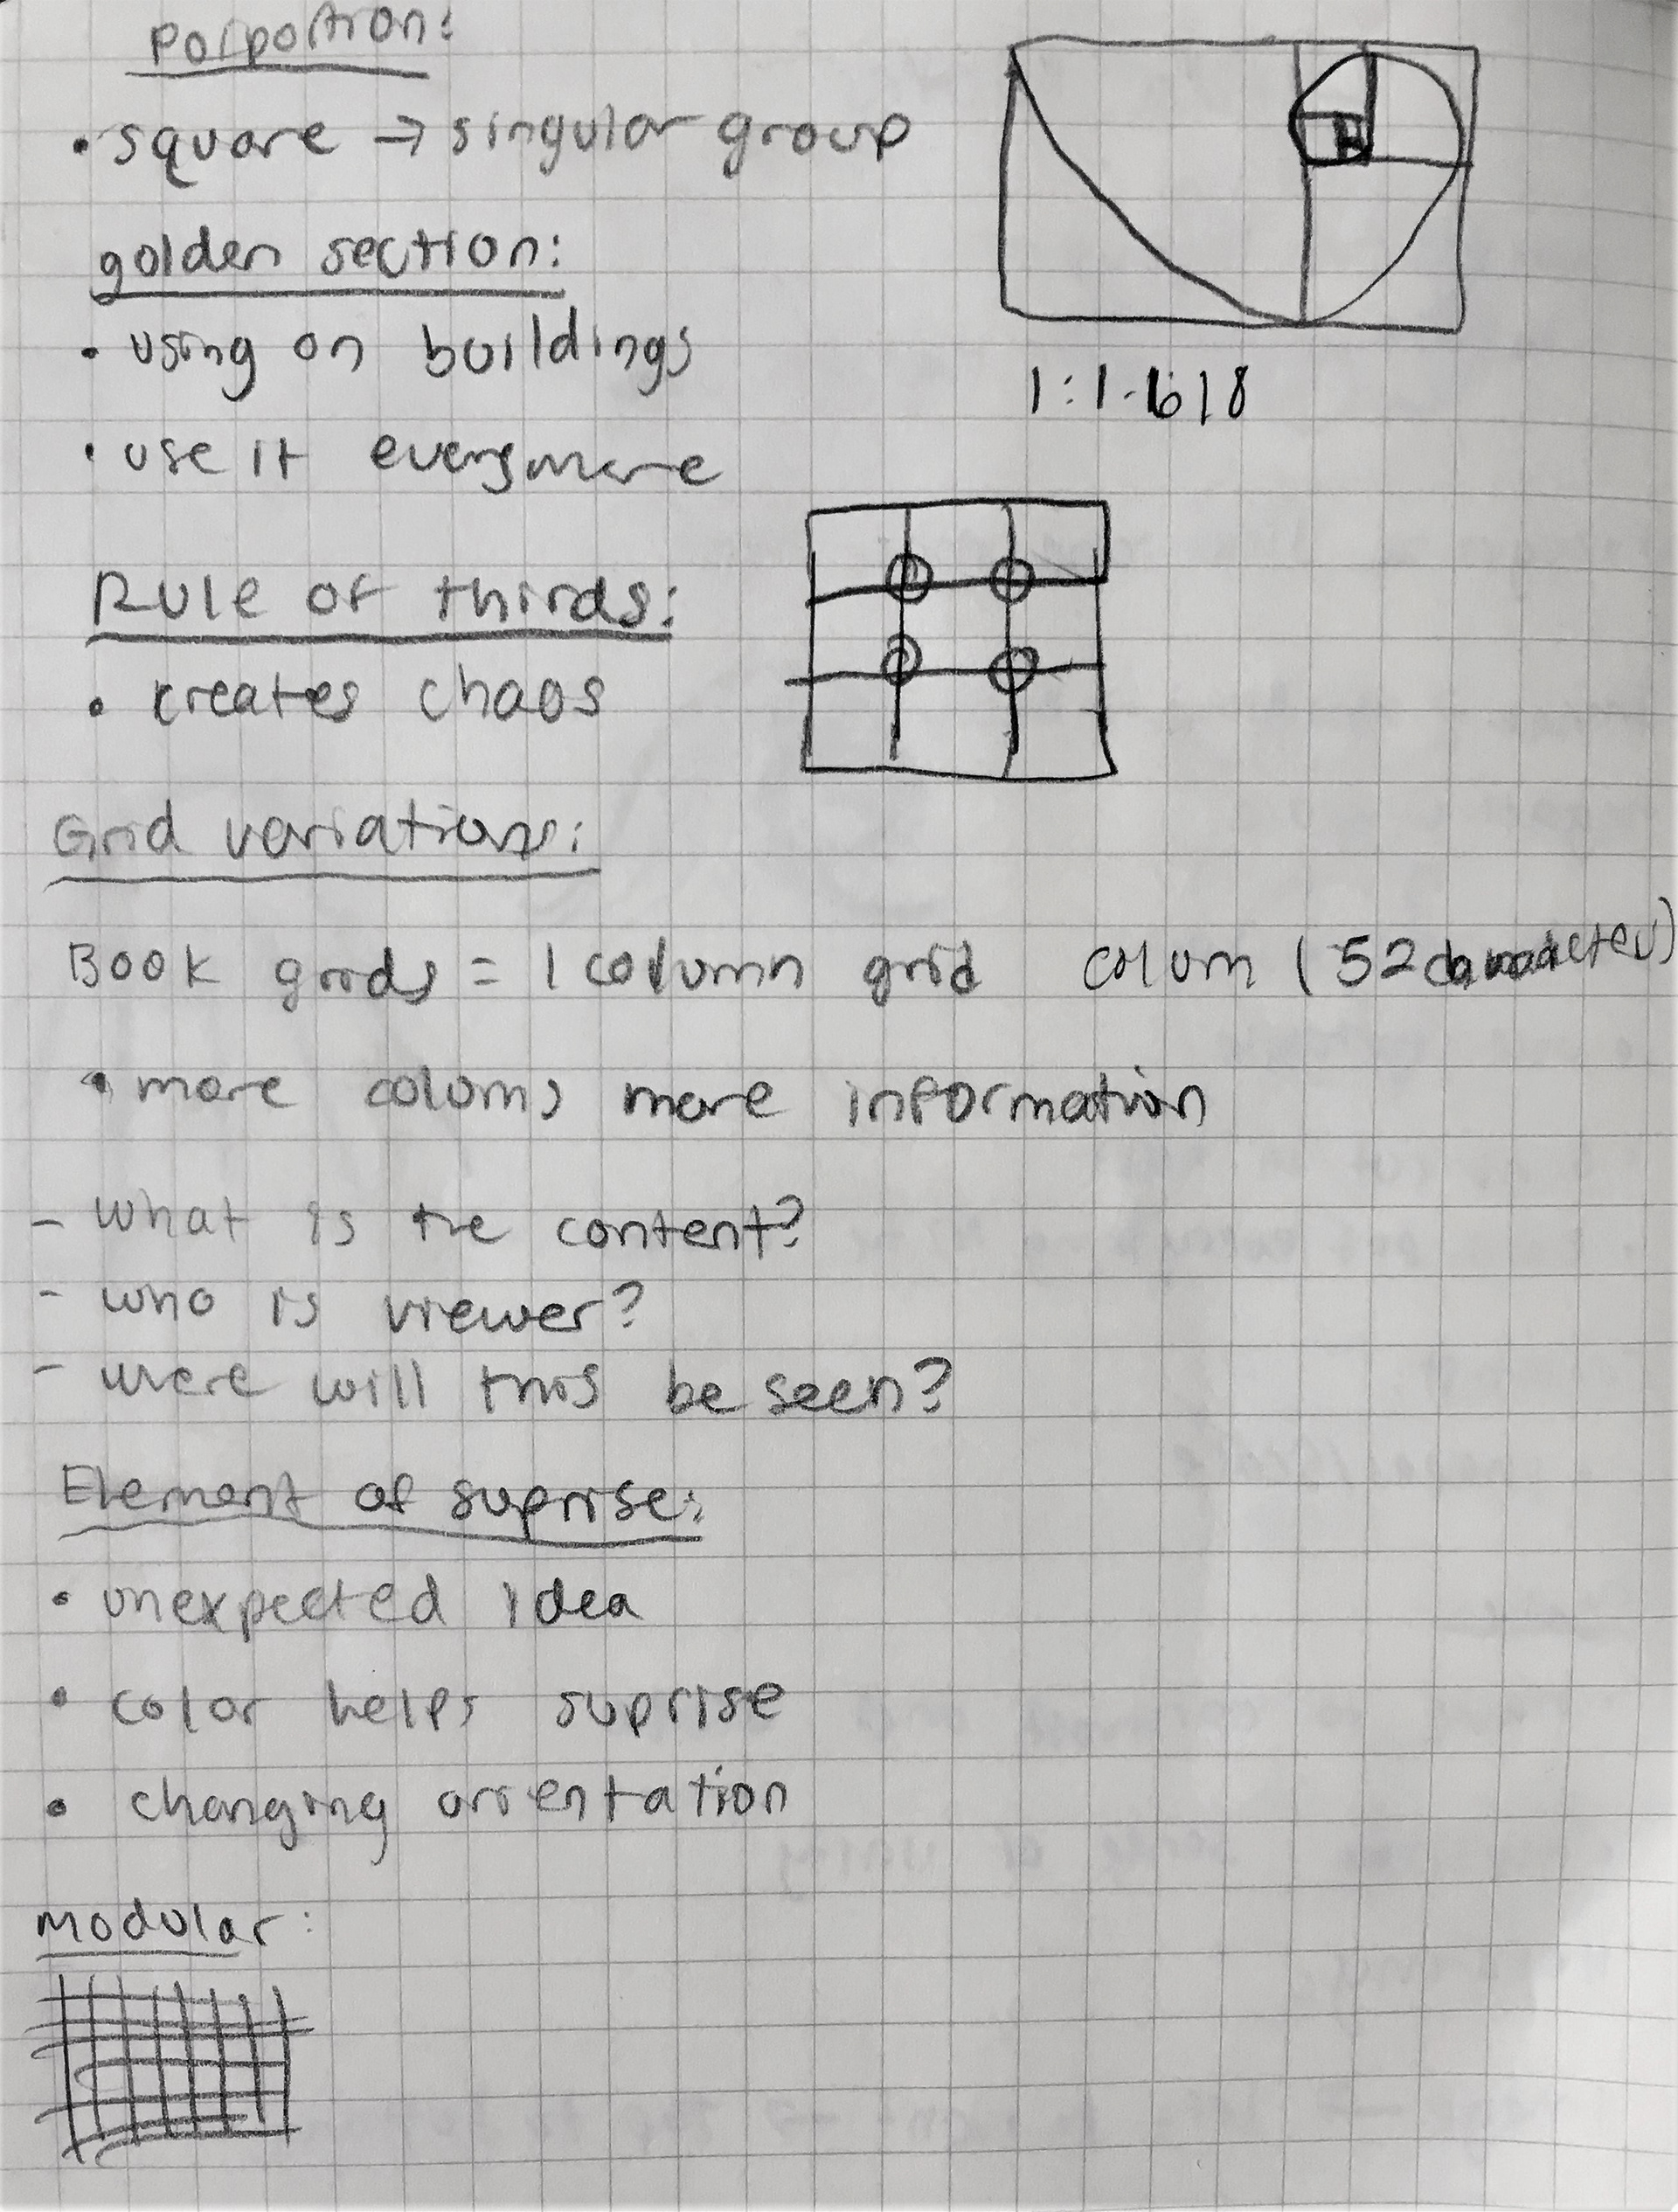 Porportion:
• square → singular group
golden section:
• using on buildings
1:1.618
• use it everymore
Rule of thirds:
• creates chaos
Grid variations:
Book grids = 1 column grid colum (52 characters)
• more colums more information
- what is the content?
- who is viewer?
- were will this be seen?
Element of suprise:
• unexpected idea
• color helps suprise
• changing orientation
Modular: